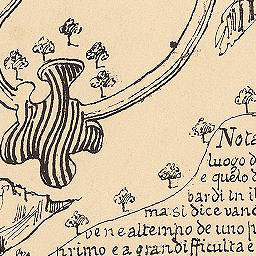 Nota
luogo d
e quelo d
bardi in il
ma si dice vano
bene al tempo de uno p
primo e a grandifficulta e